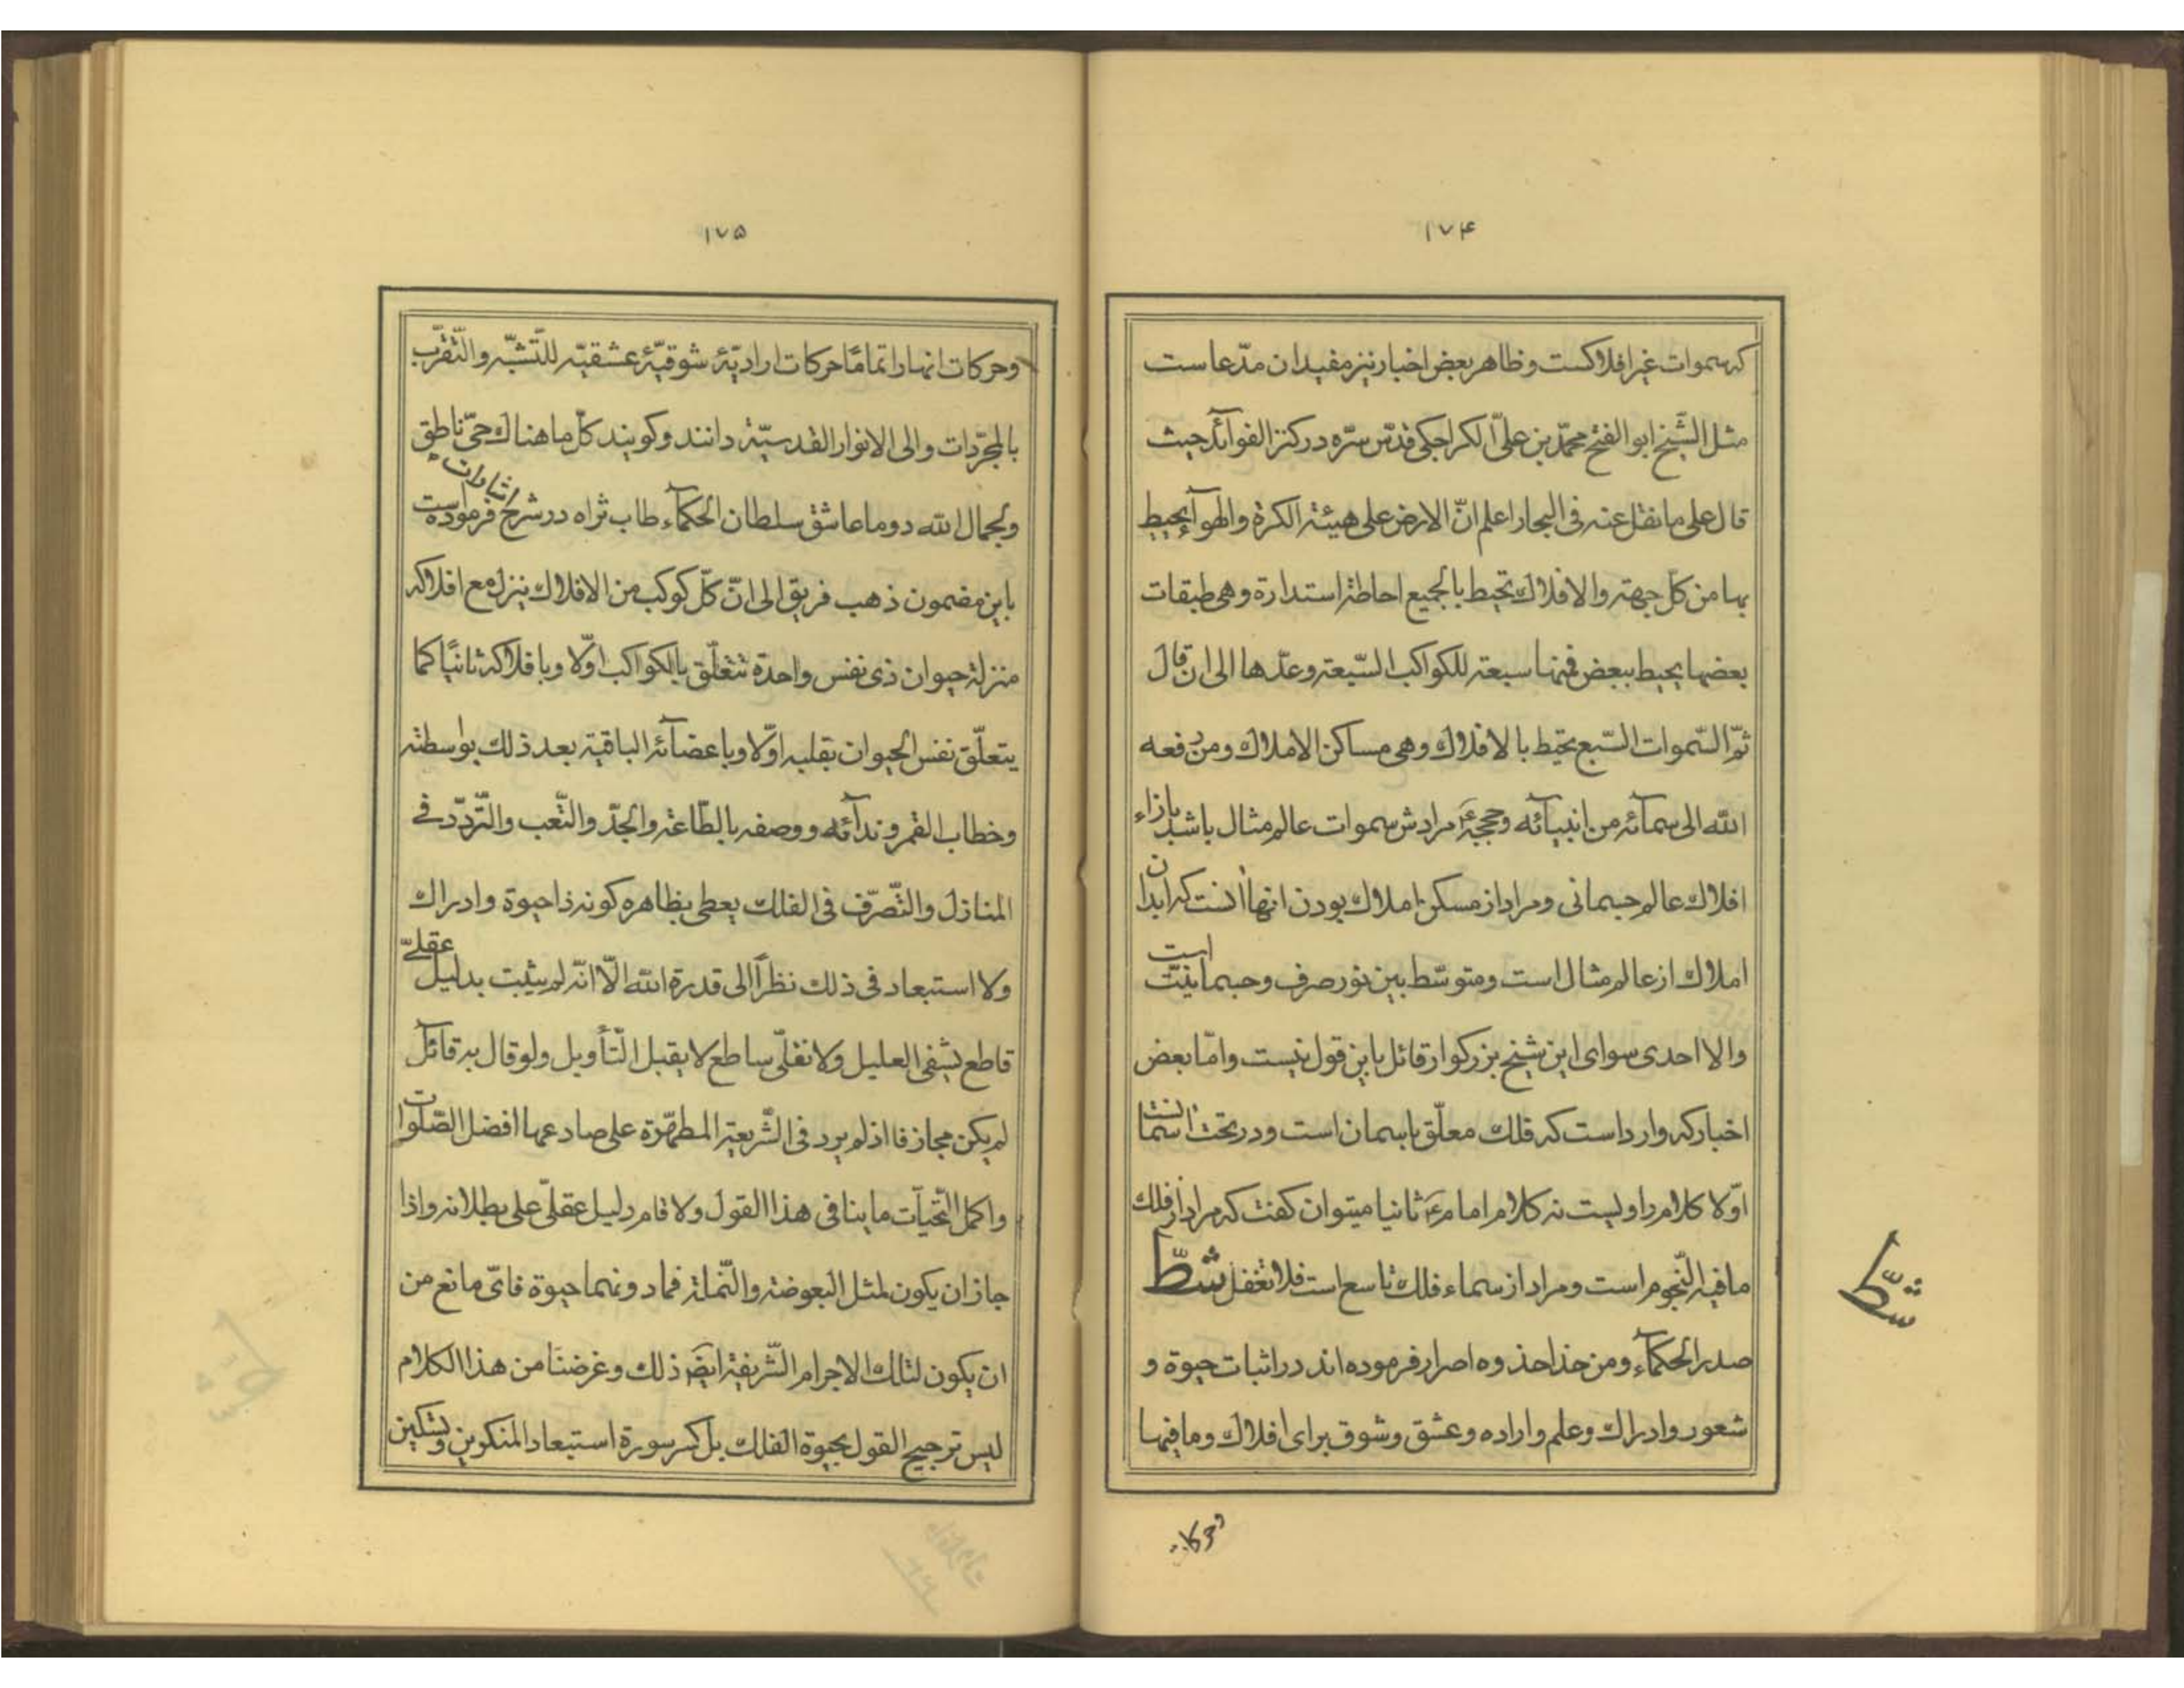 ۱۷۴
که سموات غیر افلاکست و ظاهر بعض اخبار نیز مفید ان مدّعاست
مثل الشّیخ ابو الفتح محمّد بن علیّ الکراجکی قدّس سرّه در کنز الفوآئد حیث
قال علی ما نقل عنه فی البحار اعلم انّ الارض علی هیئة الکرة والهوآء یحیط
بها من کلّ جهة والافلاک تحیط بالجمیع احاطة استدارة وهی طبقات
بعضها یحیط ببعض فمنها سبعة للکواکب السّبعة وعدّها الی ان قال
ثمّ السّموات السّبع تحیط بالافلاک وهی مساکن الاملاک ومن رفعه
الله الی سمآئه من انبیآئه وحججه ع مرادش سموات عالم مثال باشد بازاء
افلاک عالم جسمانی ومراد از مسکن املاک بودن انها انست که ابدان
املاک از عالم مثال است ومتوسّط بین نور صرف وجسمانیّت است
والا احدی سوای این شیخ بزرکوار قائل باین قول نیست وامّا بعض
اخبار که وارد است که فلک معلّق باسمان است ودر تحت اسمانست
اوّلا کلام راویست نه کلام امام ع ثانیا میتوان کفت که مراد از فلک
ما فیه النّجوم است ومراد از سماء فلک تاسع است فلا تغفل شطّ
صدر الحکمآء ومن حذا حذوه اصرار فرموده‌اند در اثبات حیوة و
شعور وادراک وعلم واراده وعشق وشوق برای افلاک وما فیها
شطّ
وحرکات
۱۷۵
وحرکات انها را تمامًا حرکات ارادیّة شوقیّة عشقیّه للتّشبّه والتّقرّب
بالمجرّدات والی الانوار القدسیّة دانند وکویند کلّ ما هناک حیّ ناطق
ولجمال الله دوما عاشق سلطان الحکمآء طاب ثراه در شرح اشارات فرموده است
باین مضمون ذهب فریق الی انّ کلّ کوکب من الافلاک ینزل مع افلاکه
منزلة حیوان ذی نفس واحدة تتعلّق بالکواکب اوّلا وبافلاکه ثانیًا کما
یتعلّق نفس الحیوان بقلبه اوّلا وباعضآئه الباقیة بعد ذلک بواسطته
وخطاب القمر وندآئه ووصفه بالطّاعة والجدّ والتّعب والتّردّد فی
المنازل والتّصرّف فی الفلک یعطی بظاهره کونه ذا حیوة وادراک
ولا استبعاد فی ذلک نظرًا الی قدرة الله الّا انّه لم یثبت بدلیل عقلیّ
قاطع یشفی العلیل ولا نقلیّ ساطع لا یقبل التّأویل ولو قال به قآئل
لم یکن مجازفا اذ لم یرد فی الشّریعة المطهّرة علی صادعها افضل الصّلوات
واکمل التّحیّات ما ینافی هذا القول ولا قام دلیل عقلیّ علی بطلانه واذا
جاز ان یکون لمثل البعوضة والنّملة فما دونهما حیوة فایّ مانع من
ان یکون لتلک الاجرام الشّریفة ایضًا ذلک وغرضنا من هذا الکلام
لیس ترجیح القول بحیوة الفلک بل کسر سورة استبعاد المنکرین وتسکین